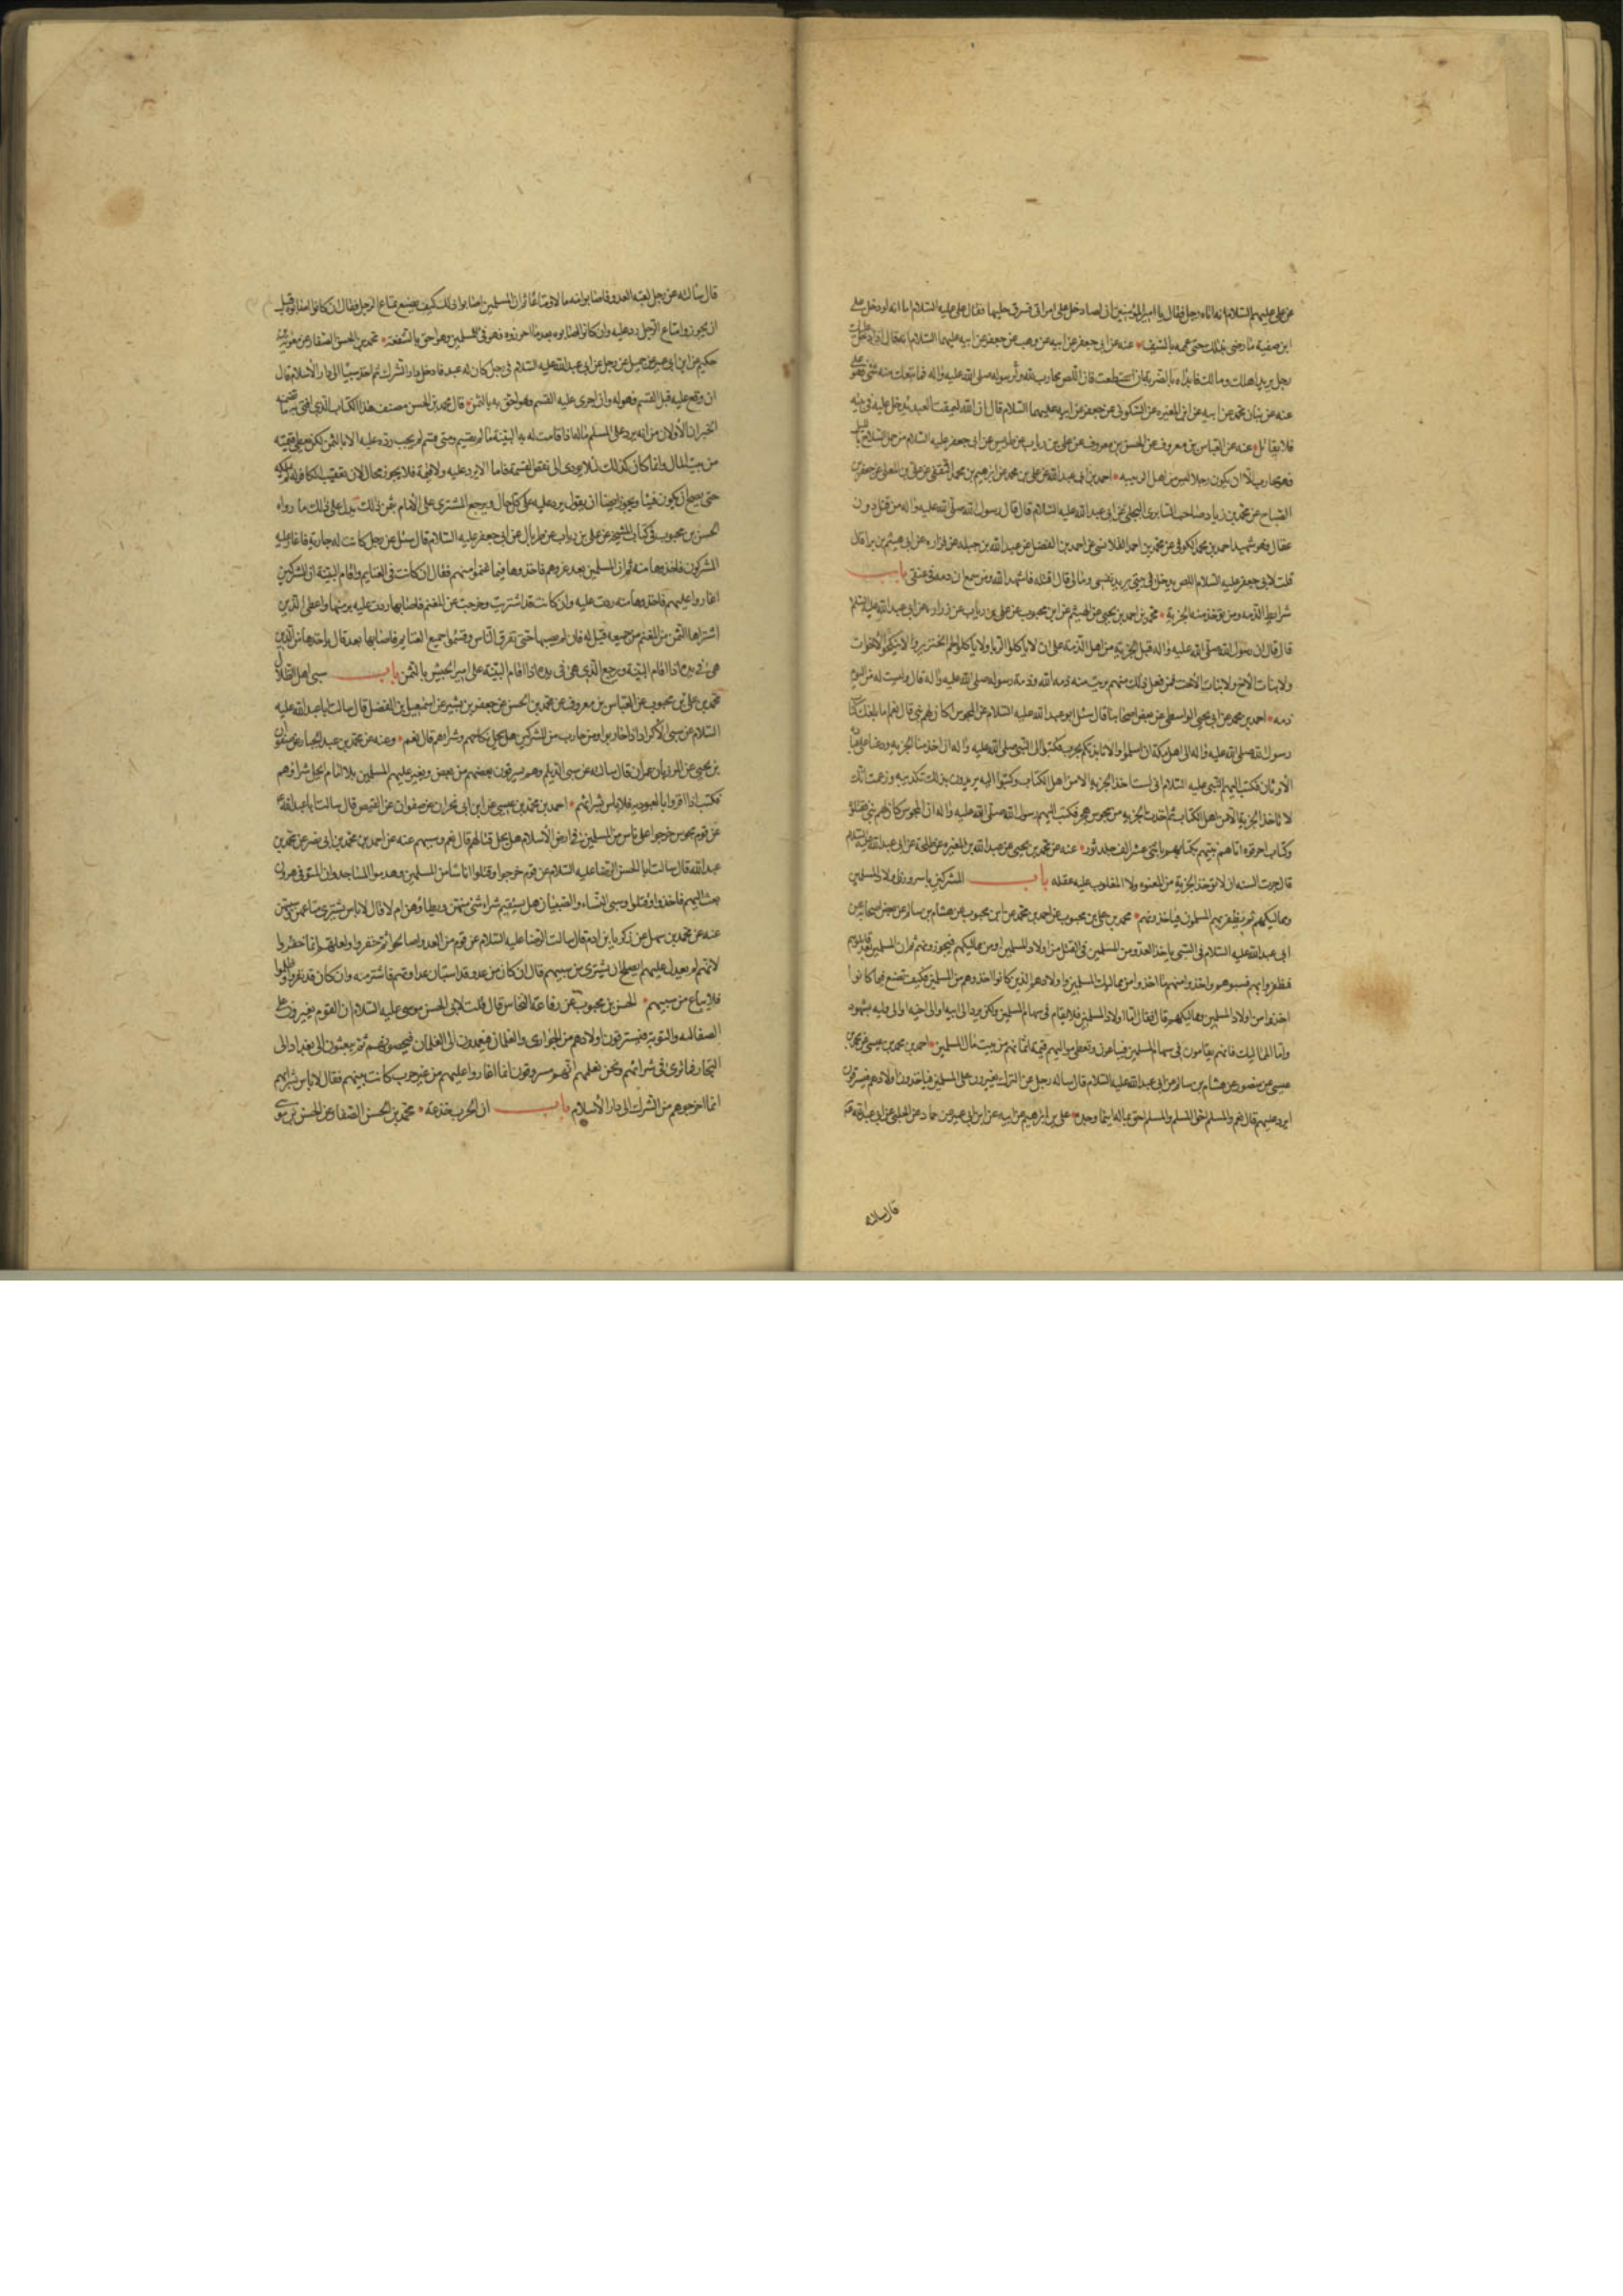 عن علي عليهم السلام انه اتاه رجل فقال يا امير المؤمنين ان لصا دخل على امراتي فسرق حليها فقال علي عليه السلام اما انه لو دخل على
ابن صفية ما رضي بذلك حتى عممه بالسيف عنه عن ابي جعفر عن ابيه عن وهب عن جعفر عن ابيه عليهما السلام انه قال اذا دخل عليك
رجل يريد اهلك ومالك فابدره بالضربة ان استطعت فان اللص محارب لله ولرسوله صلى الله عليه واله فما تبعك منه شئ فهو علي
عنه عن بنان بن محمد عن ابيه عن ابن المغيره عن السكوني عن جعفر عن ابيه عليهما السلام قال ان الله ليمقت العبد يدخل عليه في بيته
فلا يقاتل عنه عن العباس بن معروف عن الحسن بن معروف عن علي بن رياب عن ضريس عن ابي جعفر عليه السلام من حمل السلاح بالليل
فهو محارب الا ان يكون رجلا ليس من اهل الريبه احمد بن ابي عبد الله عن علي بن محمد عن ابرهيم بن محمد الثقفي عن علي بن المعلى عن جعفر بن
الصباح عن محمد بن زياد صاحب السابري البجلي عن ابي عبد الله عليه السلام قال قال رسول الله صلى الله عليه واله من قتل دون
عقال فهو شهيد احمد بن محمد الكوفي عن محمد بن احمد القلانسي عن احمد بن الفضل عن عبد الله بن جبله عن فزاره عن ابي هيثم بن برا قال
قلت لابي جعفر عليه السلام اللص يدخل في بيتي يريد نفسي ومالي قال اقتله فاشهد الله ومن سمع ان دمه في عنقي باب
شرايط الذمه ومن يوخذ منه الجزية محمد بن احمد بن يحيى عن الهيثم عن ابن محبوب عن علي بن رياب عن زراره عن ابي عبد الله عليه السلم
قال قال ان رسول الله صلى الله عليه واله قبل الجزيه من اهل الذمة على ان لا ياكلوا الربا ولا ياكلوا لحم الخنزير ولا ينكحوا الاخوات
ولا بنات الاخ ولا بنات الاخت فمن فعل ذلك منهم برئت منه ذمه الله وذمة رسوله صلى الله عليه واله قال وليست لهم اليوم
ذمه احمد بن محمد عن ابي يحيى الواسطي عن بعض اصحابنا قال سئل ابو عبد الله عليه السلام عن المجوس اكان لهم نبي قال نعم اما بلغك كتاب
رسول الله صلى الله عليه واله الى اهل مكة ان اسلموا والا نابذتكم بحرب فكتبوا الى النبي صلى الله عليه واله ان خذ منا الجزيه ودعنا على عبادة
الاوثان فكتب اليهم النبي عليه السلام اني لست اخذ الجزيه الا من اهل الكتاب وكتبوا اليه يريدون بذلك تكذيبه وزعمت انك
لا تاخذ الجزية الا من اهل الكتاب ثم اخذت الجزيه من مجوس هجر فكتب اليهم رسول الله صلى الله عليه واله ان المجوس كان لهم نبي فقتلوه
وكتاب احرقوه اتاهم نبيهم بكتابهم في اثنى عشر الف جلد ثور عنه عن محمد بن يحيى عن عبد الله بن المغيره عن طلحة عن ابي عبد الله عليه السلام
قال جرت السنه ان لا توخذ الجزية من المعتوه ولا المغلوب عليه عقله باب المشركين ياسرون اولاد المسلمين
ومماليكهم ثم يظفر بهم المسلمون فياخذونهم محمد بن علي بن محبوب عن احمد بن محمد عن ابن محبوب عن هشام بن سالم عن بعض اصحابه عن
ابي عبد الله عليه السلام في السبي ياخذ العدو من المسلمين في القتل من اولاد المسلمين او من مماليكهم فيحوزونهم ثم ان المسلمين بعد قاتلوهم
فظفروا بهم فسبوهم واخذوا منهم ما اخذوا من مماليك المسلمين واولادهم الذين كانوا اخذوهم من المسلمين فكيف يصنع بما كانوا
اخذوا من اولاد المسلمين ومماليكهم قال فقال اما اولاد المسلمين فلا يقام في سهام المسلمين ولكن يرد الى ابيه او الى اخيه او الى وليه بشهود
واما المماليك فانهم يقامون في سهام المسلمين فيباعون وتعطى مواليهم قيمة اثمانهم من بيت مال المسلمين احمد بن محمد بن عيسى عن محمد بن
عيسى عن منصور عن هشام بن سالم عن ابي عبد الله عليه السلام قال ساله رجل عن الترك يغيرون على المسلمين فياخذون اولادهم فيسرقون
ايرد عليهم قال نعم والمسلم اخو المسلم والمسلم احق بماله اينما وجده علي بن ابرهيم عن ابيه عن ابن ابي عمير عن حماد عن الحلبي عن ابي عبد الله
قال سالته
قال سالته عن رجل لقيه العدو فاصابوا منه مالا او متاعا ثم ان المسلمين اصابوا ذلك كيف يصنع بمتاع الرجل فقال ان كانوا اصابوه قبل
ان يحوزوا متاع الرجل رد عليه وان كانوا اصابوه بعد ما احرزوه فهو فئ للمسلمين وهو احق بالشفعة محمد بن الحسن الصفار عن معوية بن
حكيم عن ابن ابي عمير عن جميل عن رجل عن ابي عبد الله عليه السلام في رجل كان له عبد فادخل دار الشرك ثم اخذ سبيا الى دار الاسلام قال
ان وقع عليه قبل القسم فهو له وان جرى عليه القسم فهو احق به بالثمن قال محمد بن الحسن مصنف هذا الكتاب الذي افتي به ما تضمنه
الخبران الاولان من انه يرد على المسلم ماله اذا قامت له به البينة ما لم يقسم ومتى قسم لم يجب رده عليه الا بالثمن لكن يعطى قيمته
من بيت المال وانما كان كذلك لئلا يودي الى نقض القسمة فاما الا يرد عليه ولا قيمة فلا يجوز بحال لان بغصب الكافر له لم يملكه
حتى يصح ان يكون فيئا ويجوز ايضا ان يقول يرد عليه على كل حال ويرجع المشتري على الامام بثمن ذلك يدل على ذلك ما رواه
الحسن بن محبوب في كتاب المشيخة عن علي بن رياب عن طربال عن ابي جعفر عليه السلام قال سئل عن رجل كانت له جارية فاغار عليه
المشركون فاخذوها منه ثم ان المسلمين بعد غزوهم فاخذوها فيما غنموا منهم فقال ان كانت في الغنايم واقام البينة ان المشركين
اغاروا عليهم فاخذوها منه ردت عليه وان كانت قد اشتريت وخرجت من المغنم فاصابها ردت عليه برمتها واعطى الذي
اشتراها الثمن من المغنم من جميعه قيل له فان لم يصبها حتى تفرق الناس وقسموا جميع الغنايم فاصابها بعد قال ياخذها من الذي
هي في يده اذا اقام البينة ويرجع الذي هي في يده اذا اقام البينة على امير الجيش بالثمن باب سبي اهل الضلال
محمد بن علي بن محبوب عن العباس بن معروف عن محمد بن الحسن عن جعفر بن بشير عن اسمعيل بن الفضل قال سالت ابا عبد الله عليه
السلام عن سبي الاكراد اذا حاربوا ومن حارب من المشركين هل يحل نكاحهم وشراهم قال نعم وعنه عن محمد بن عبد الجبار عن صفوان
بن يحيى عن المرزبان بن عمران قال سالته عن سبي الديلم وهم يسرقون بعضهم من بعض ويغير عليهم المسلمين بلا امام ايحل شراؤهم
فكتب اذا اقروا بالعبوديه فلا باس بشرائهم احمد بن محمد بن عيسى عن ابن ابي نجران عن صفوان عن العيص قال سالت ابا عبد الله
عن قوم مجوس خرجوا على ناس من المسلمين في ارض الاسلام هل يحل قتالهم قال نعم وسبيهم عنه عن احمد بن محمد بن ابي نصر عن محمد بن
عبد الله قال سالت ابا الحسن الرضا عليه السلام عن قوم خرجوا وقتلوا اناسا من المسلمين وهدموا المساجد وان المتوفى هرون
بعث اليهم فاخذوا وقتلوا وسبي النساء والصبيان هل يستقيم شراء شئ منهن ويطاؤهن ام لا قال لا باس بشرى متاعهن وسبيهن
عنه عن محمد بن سهل عن زكريا بن ادم قال سالت الرضا عليه السلام عن قوم من العدو صالحوا ثم خفروا ولعلهم انما خفروا
لانه لم يعدل عليهم ايصلح ان يشترى من سبيهم قال ان كان من عدو قد استبان عداوتهم فاشتر منه وان كان قد نفروا وظلموا
فلا يباع من سبيهم الحسن بن محبوب عن رفاعة النخاس قال قلت لابي الحسن موسى عليه السلام ان القوم يغيرون على
الصقالبه والنوبة فيسترقون اولادهم من الجواري والغلمان فيعمدون الى الغلمان فيخصونهم ثم يبعثون الى بغداد الى
التجار فما ترى في شرائهم ونحن نعلم انهم مسروقون انما اغاروا عليهم من غير حرب كانت بينهم فقال لا باس بشرائهم
انما اخرجوهم من الشرك الى دار الاسلام باب ان الحرب خدعة محمد بن الحسن الصفار عن الحسن بن موسى